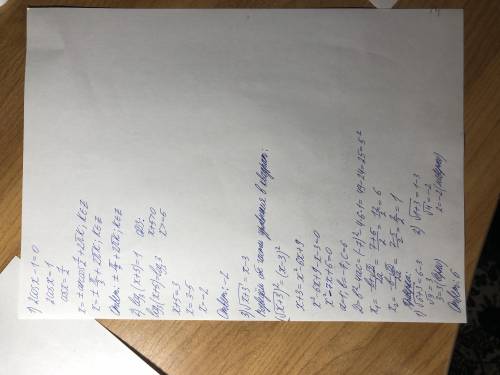 1) 2cos x - 1 = 0
2cos x = 1
cos x = 1/2
x = ± arccos 1/2 + 2πk, k∈Z
x = ± π/3 + 2πk, k∈Z
Ответ: ± π/3 + 2πk, k∈Z
2) log₃(x+5) = 1 ОДЗ:
log₃(x+5) = log₃3 x+5>0
x+5=3 x>-5
x=3-5
x=-2
Ответ: -2
3) √x+3 = x-3
Возведём обе части уравнения в квадрат:
(√x+3)² = (x-3)²
x+3 = x²-6x+9
x²-6x+9-x-3=0
x²-7x+6=0
a=1, b=-7, c=6
D = b²-4ac = (-7)²-4·6·1 = 49-24 = 25 = 5²
x₁ = = (7+5)/2 = 12/2 = 6
x₂ = = = 2/2 = 1
1) √6+3 = 6-3 2) √1+3 = 1-3
√9 = 3 √4 = -2
3=3 (верно) 2=-2 (неверно)
Ответ: 6